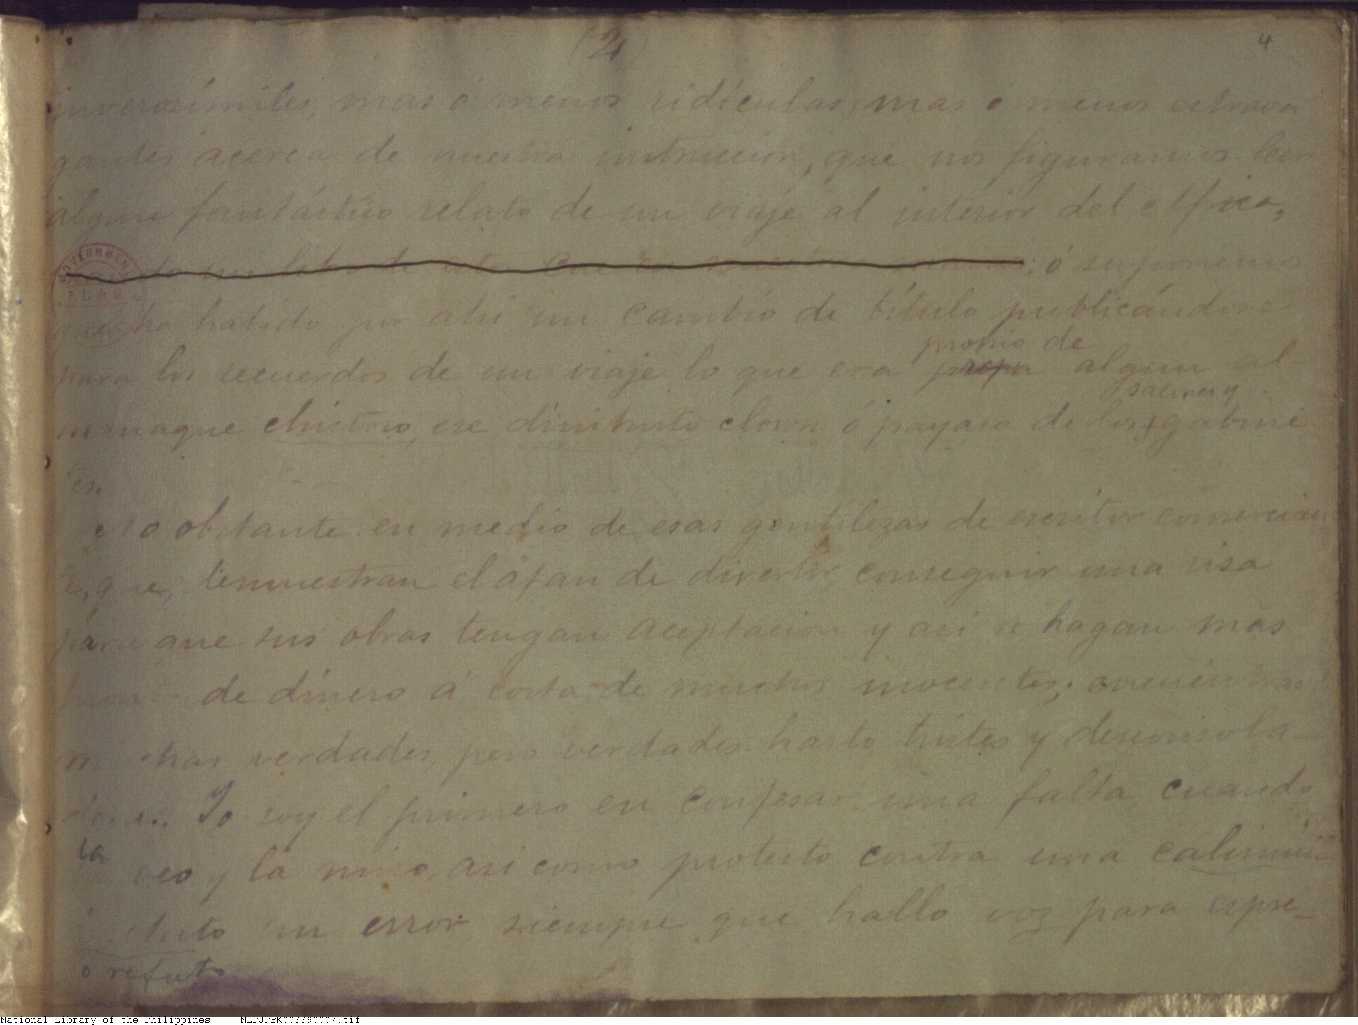 (2)
4
inverosímiles, mas ó menos ridículas, mas ó menos estrava
gantes acerca de nuestra instruccion, que nos figuramos leer
algun fantástico relato de un viaje al interior del Africa,
ó suponemos
que ha habido por ahi un cambio de título publicándose
propio de
para los recuerdos de un viaje lo que era algun al
salones y
manaque chistoso, ese diminuto clown ó payaso de los gabine
tes.
No obstante en medio de esas gentilezas de escritor comercian
te, que demuestran el afan de divertir, conseguir una risa
para que sus obras tengan aceptacion y asi se hagan mas
de dinero á costa de muchos inocentes,
muchas verdades, pero verdades harto tristes y desconsola-
doras. Yo soy el primero en confesar una falta cuando
la veo y la miro, asi como protesto contra una calumnia
un error siempre que hallo voz para espre-
ó refuto
National Library of the Philippines